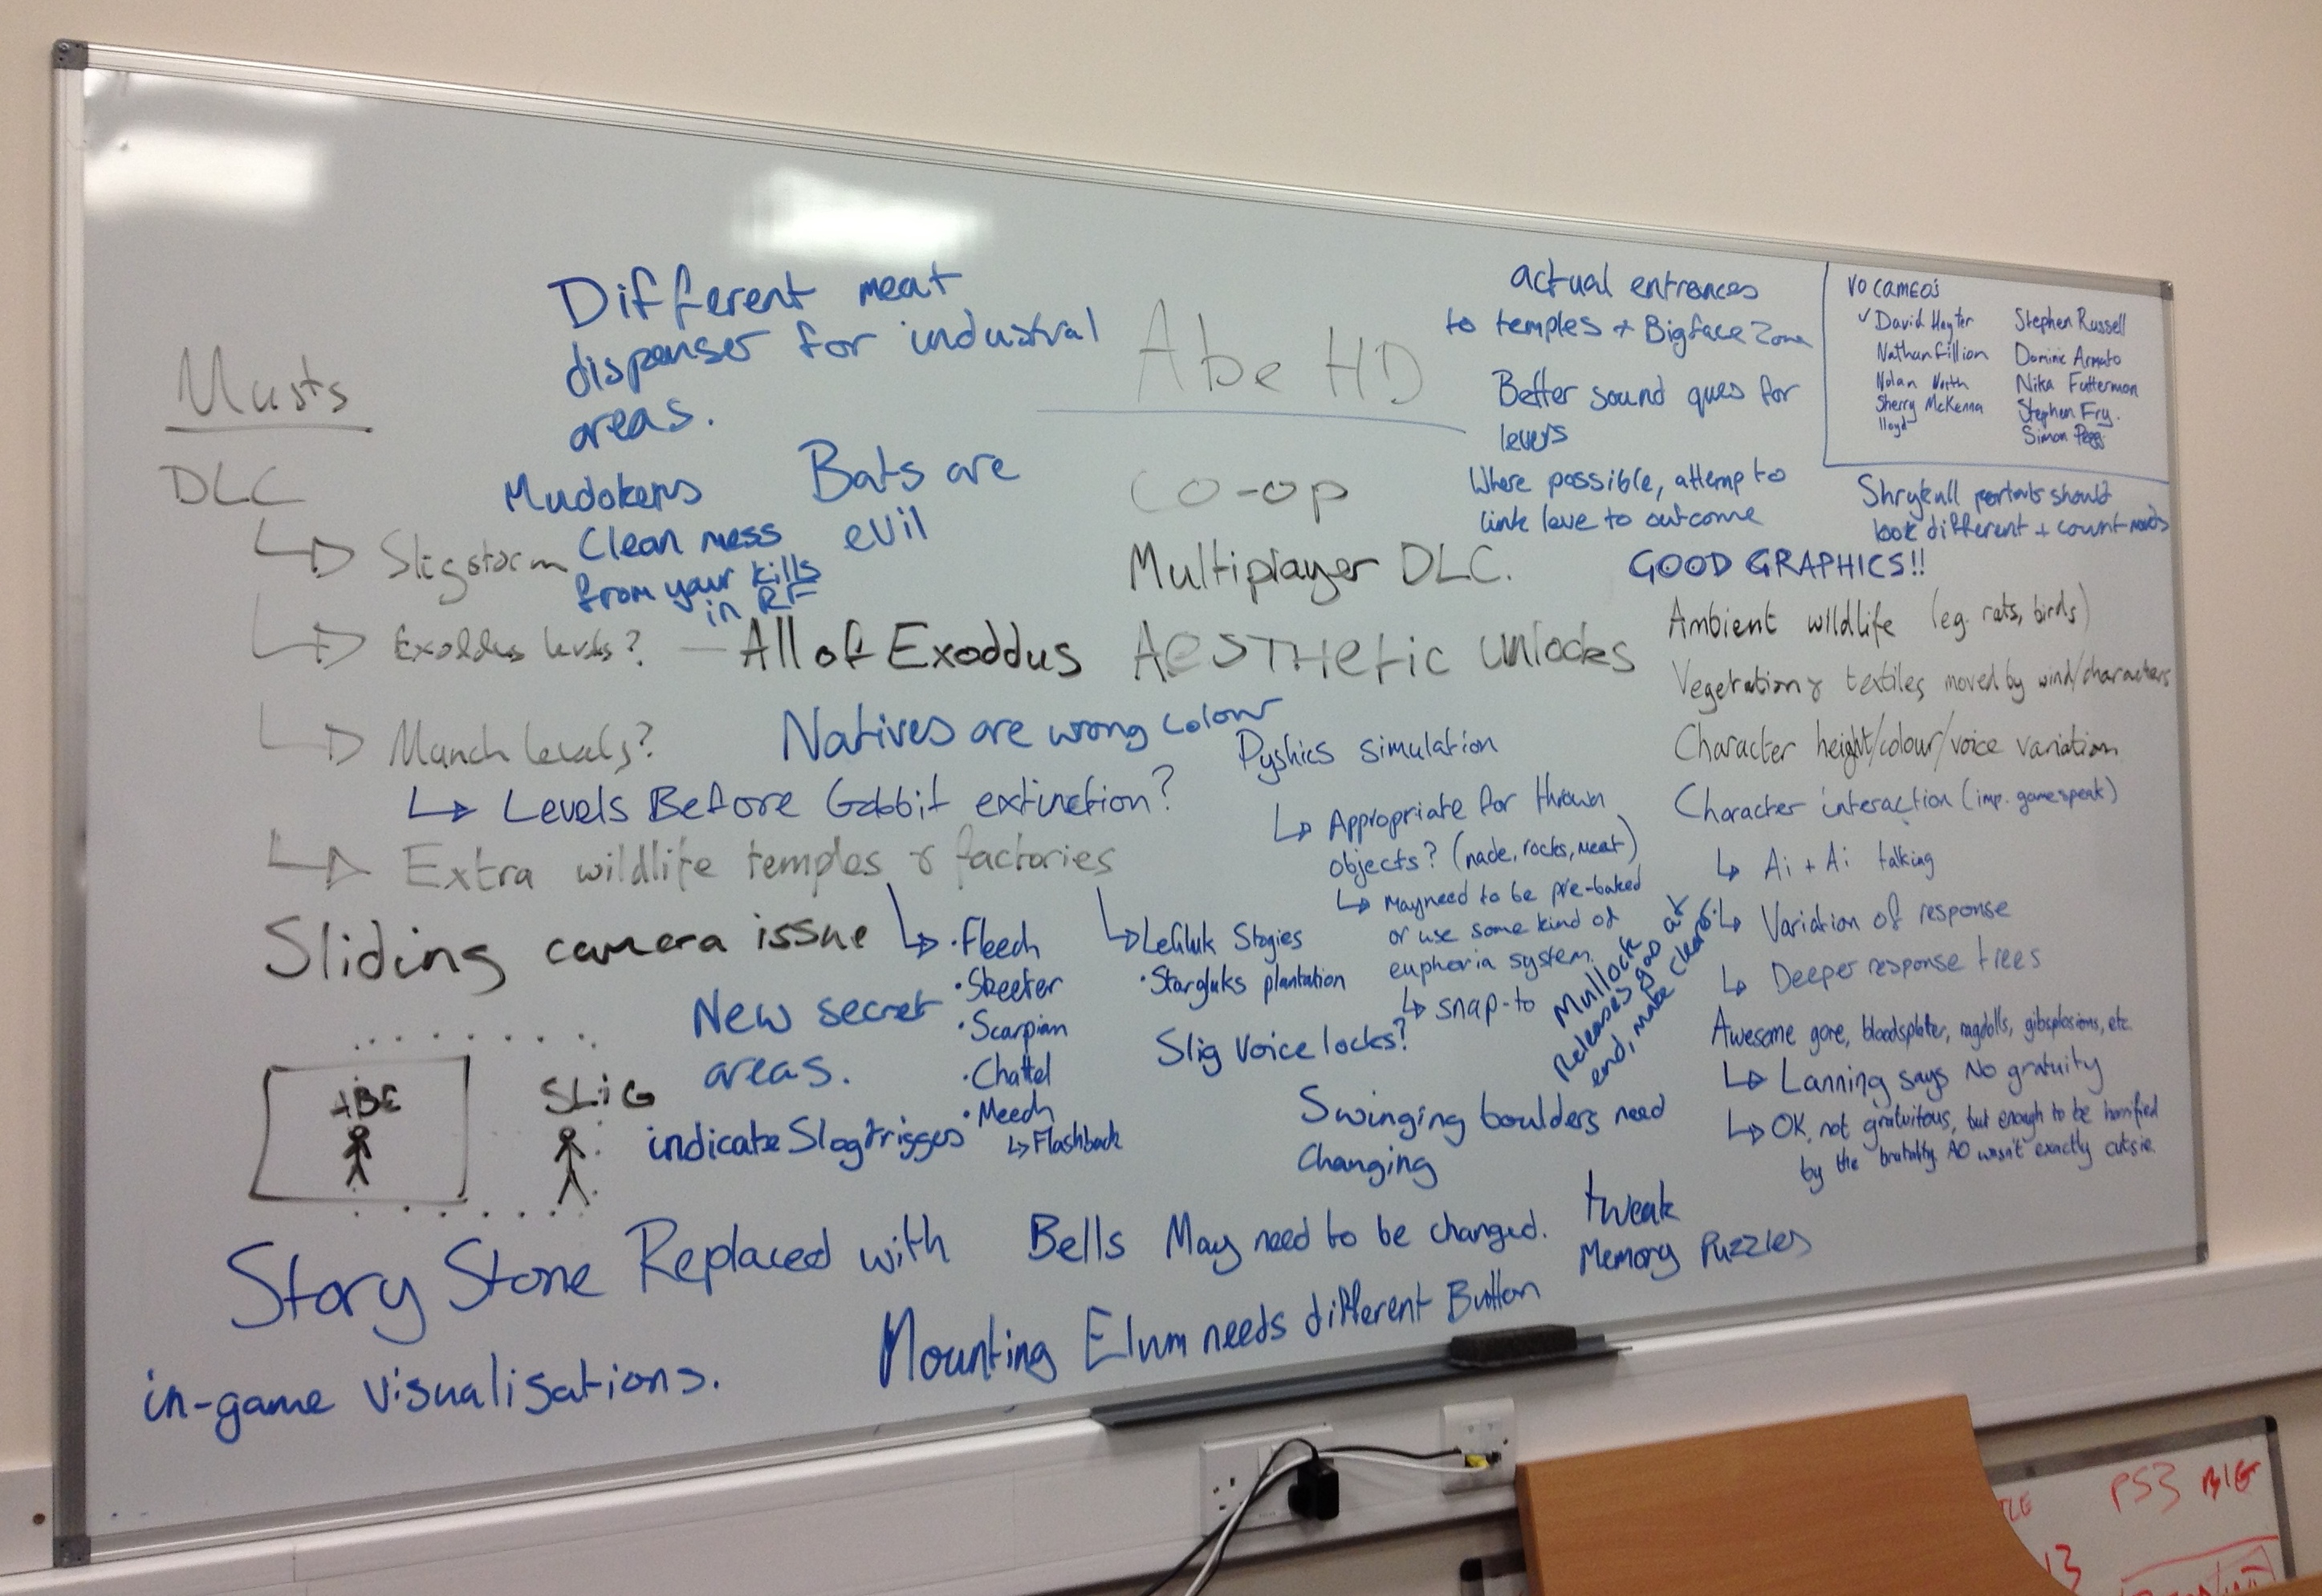 Musts
DLC
Sligstorm
Exoddus levels? — All of Exoddus
Munch levels?
Levels Before Gabbit extinction?
Extra wildlife temples & factories
• Fleech
• Skeeter
• Scarpian
• Chattel
• Meech
Flashback
Lefluk Stogies
• Stargluks plantation
Different meat
dispenser for industrial
areas.
Mudokens
Clean mess
from your kills
in RF
Bats are
evil
Natives are wrong colour
Sliding camera issue
ABE
SLiG
New secret
areas.
indicate Slogtrigges
Story Stone Replaced with
in-game visualisations.
Abe HD
Co-op
Multiplayer DLC.
AESTHetic unlocks
Pyshics simulation
Appropriate for thrown
objects? (nade, rocks, meat)
May need to be pre-baked
or use some kind of
euphoria system.
snap-to
Slig Voice locks?
Mullock
Releases gas at
end, make clear.
Swinging boulders need
Changing
Bells May need to be changed.
tweak
Memory Puzzles
Mounting Elum needs different Button
actual entrances
to temples + Bigface Zone
Better sound ques for
levers
Where possible, attemp to
link leve to outcome
VO CAMEOS
✓ David Hayter
Nathan Fillion
Nolan North
Sherry McKenna
lloyd
Stephen Russell
Dominic Armato
Nika Futterman
Stephen Fry.
Simon Pegg
Shrykull portals should
look different + count muds
GOOD GRAPHICS!!
Ambient wildlife (eg. rats, birds)
Vegetation & textiles moved by wind/characters
Character height/colour/voice variation
Character interaction (imp. gamespeak)
Ai + Ai talking
Variation of response
Deeper response trees
Awesome gore, bloodsplater, ragdolls, gibsplosions, etc.
Lanning says No gratuity
OK, not gratuitous, but enough to be horrified
by the brutality. AO wasn't exactly cutsie.
PS3